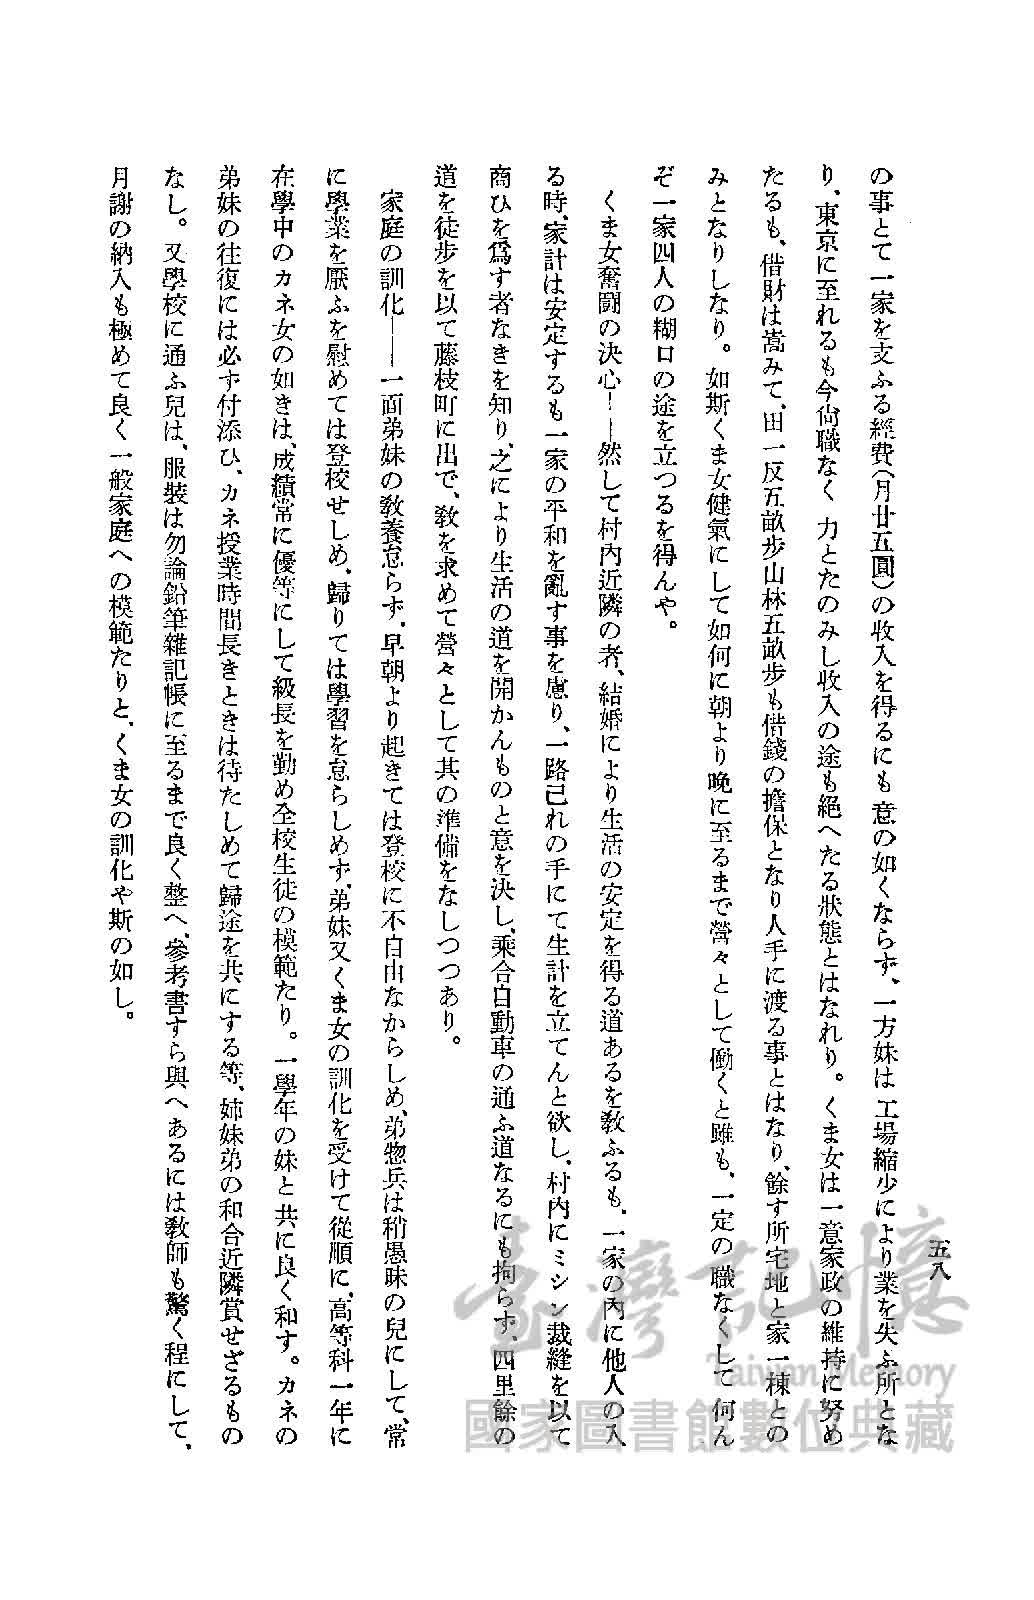 五八
の事とて一家を支ふる經費(月廿五圓)の收入を得るにも意の如くならず、一方妹は工場縮少により業を失ふ所とな
り、東京に至れるも今尙職なく力とたのみし收入の途も絕へたる狀態とはなれり。くま女は一意家政の維持に努め
たるも、借財は嵩みて、田一反五畝步山林五畝步も借錢の擔保となり人手に渡る事とはなり、餘す所宅地と家一棟との
みとなりしなり。如斯くま女健氣にして如何に朝より晩に至るまで營々として働くと雖も、一定の職なくして何ん
ぞ一家四人の糊口の途を立つるを得んや。
くま女奮鬪の決心!――然して村內近隣の者、結婚により生活の安定を得る道あるを敎ふるも、一家の內に他人の入
る時、家計は安定するも一家の平和を亂す事を慮り、一路己れの手にて生計を立てんと欲し、村內にミシン裁縫を以て
商ひを爲す者なきを知り、之により生活の道を開かんものと意を決し、乘合自動車の通ふ道なるにも拘らず、四里餘の
道を徒步を以て藤枝町に出で、敎を求めて營々として其の準備をなしつつあり。
家庭の訓化――一面弟妹の敎養怠らず、早朝より起きては登校に不自由なからしめ、弟惣兵は稍愚昧の兒にして、常
に學業を厭ふを慰めては登校せしめ、歸りては學習を怠らしめず、弟妹又くま女の訓化を受けて從順に、高等科一年に
在學中のカネ女の如きは、成績常に優等にして級長を勤め全校生徒の模範たり。一學年の妹と共に良く和す。カネの
弟妹の往復には必ず付添ひ、カネ授業時間長きときは待たしめて歸途を共にする等、姉妹弟の和合近隣賞せざるもの
なし。又學校に通ふ兒は、服裝は勿論鉛筆雜記帳に至るまで良く整へ、參考書すら與へあるには敎師も驚く程にして、
月謝の納入も極めて良く一般家庭への模範たりと、くま女の訓化や斯の如し。
臺灣記憶
Taiwan Memory
國家圖書館數位典藏